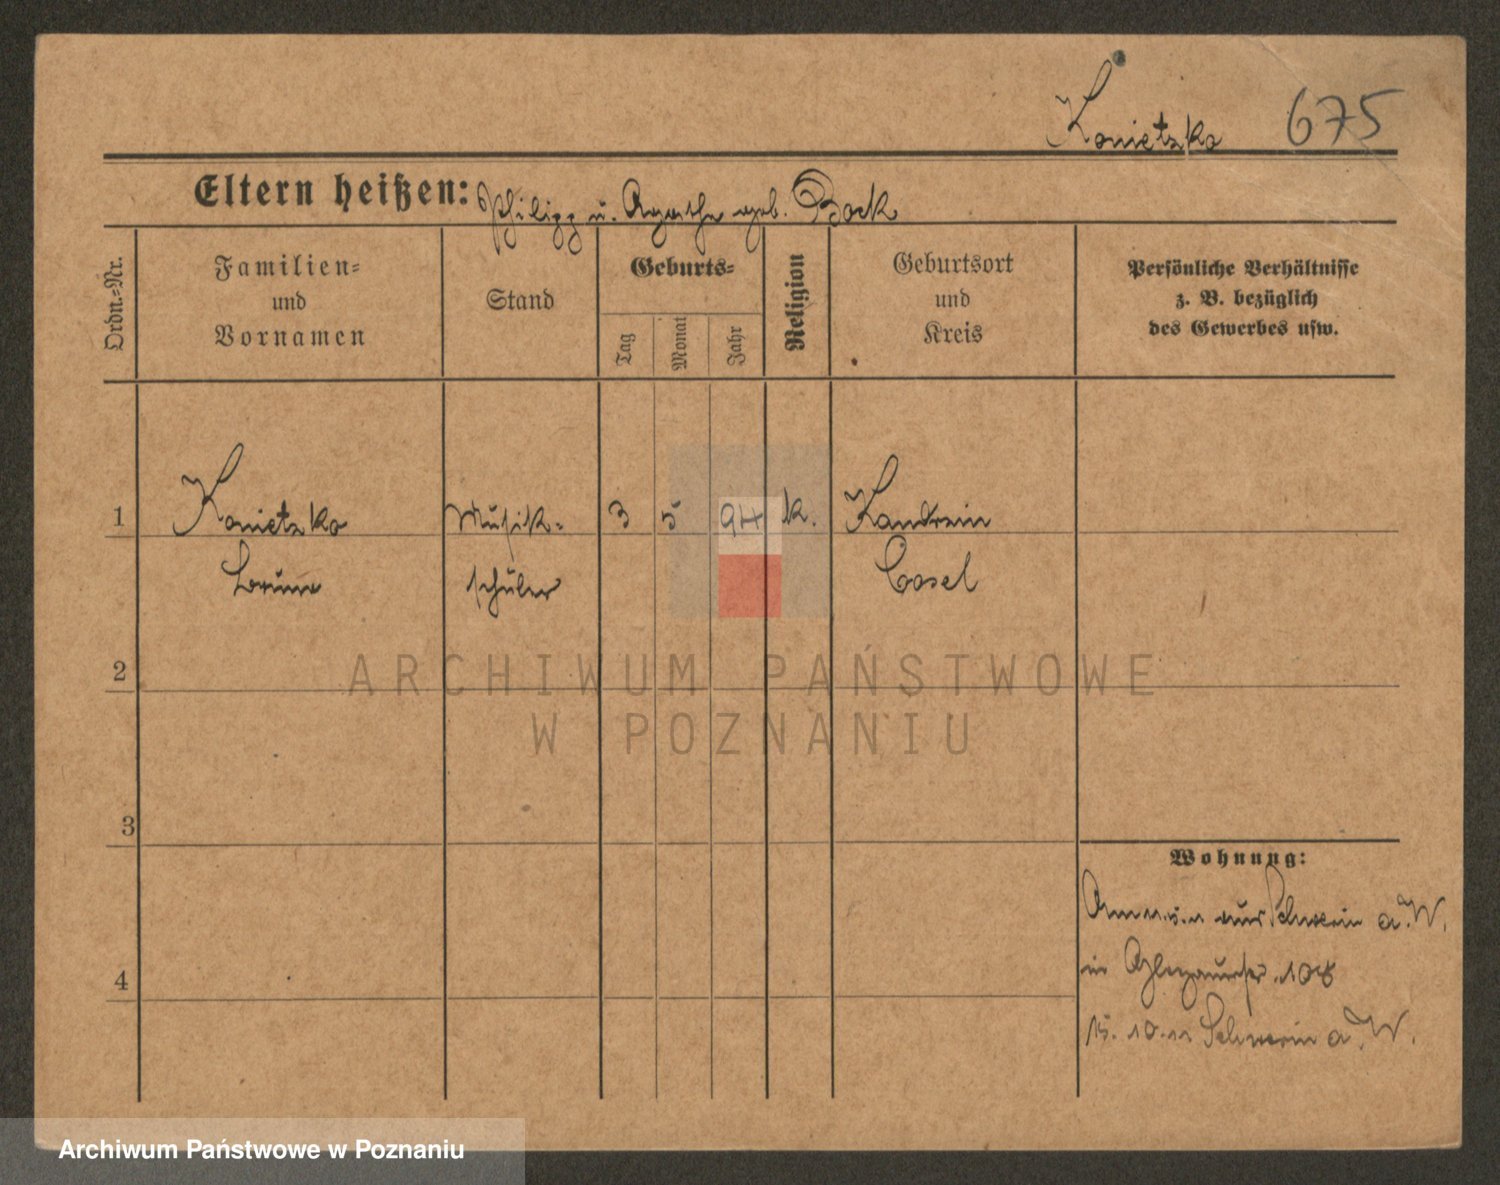 Konietzko 675
Eltern heißen: Philipp u. Agathe geb. Bock
Ordn.-Nr.
Familien-
und
Vornamen
Stand
Geburts-
Tag
Monat
Jahr
Religion
Geburtsort
und
Kreis
Persönliche Verhältnisse
z. B. bezüglich
des Gewerbes usw.
1 Konietzko Musik- 3 5 94 k. Kandrzin
Bruno schüler Cosel
2
3
4
Wohnung:
aus Schwerin a. W.
in 108
15. 10. 11 Schwerin a. W.
ARCHIWUM PAŃSTWOWE
W POZNANIU
Archiwum Państwowe w Poznaniu